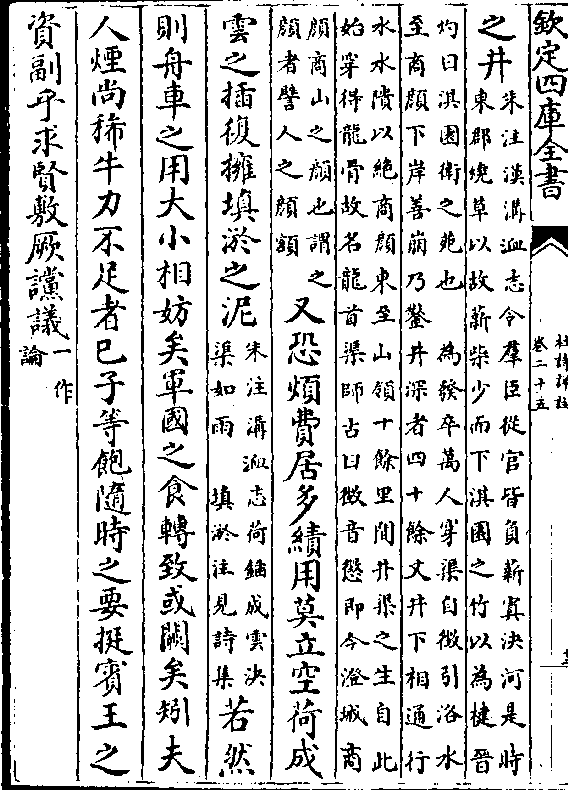 欽定四庫全書
杜詩詳註
卷二十五
之井
朱注漢溝洫志令羣臣從官皆負薪寘決河是時
東郡燒草以故薪柴少而下淇園之竹以為楗晉
灼曰淇園衛之苑也　為發卒萬人穿渠自徵引洛水
至商顔下岸善崩乃鑿井深者四十餘丈井下相通行
水水隤以絕商顔東至山領十餘里間井渠之生自此
始穿得龍骨故名龍首渠師古曰徵音懲即今澄城商
顔商山之顔也謂之
顔者譬人之顔額
又恐煩費居多績用莫立空荷成
雲之插復擁填淤之泥
朱注溝洫志荷鍤成雲決
渠如雨　填淤注見詩集
若然
則舟車之用大小相妨矣軍國之食轉致或闕矣矧夫
人煙尚稀牛力不足者巳子等飽隨時之要挺賓王之
資副乎求賢敷厥讜議
一作
論